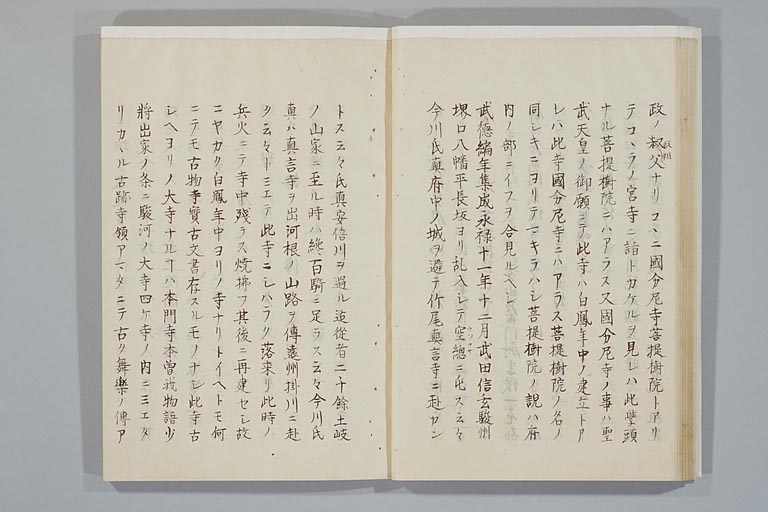 政ノ叔父ナリコヽニ國分尼寺菩提樹院トアリ
テコヽラノ宮寺ニ詣トカケルヲ見レハ此豐頭
ナル菩提樹院ニハアラス又國分尼寺ノ事ハ聖
武天皇ノ御願ニテ此寺ハ白鳳年中ノ建立トア
レハ此寺國分尼寺ニハアラス菩提樹院ノ名ノ
同シキニヨリテマキラハシ菩提樹院ノ説ハ府
内ノ部ニイフヲ合見ルヘシ
武德編年集成永禄十一年十二月武田信玄駿州
堺口八幡平長坂ヨリ乱入シテ ニ屯ス云々
今川氏真府中ノ城ヲ避テ作尾真言寺ニ赴カン
トス云々氏真安倍川ヲ過ル道従者二十餘土岐
ノ山家ニ至ル時ハ縂百騎ニ足ラス云々今川氏
真ハ真言寺ヲ出河根ノ山路ヲ傳遠州掛川ニ赴
ク云々トミエテ此寺ニシハラク落来リ此時ノ
兵火ニテ寺中残ラス焼拂フ其後ニ再建セシ故
ニヤカク白鳳年中ヨリノ寺ナリトイヘトモ何
ニテモ古物寺寶古文書存スルモノナシ此寺古
シヘヨリノ大寺ナルヿハ本門寺本曽我物語少
將出家ノ条ニ駿河ノ大寺四ケ寺ノ内ニミエタ
リカヽル古跡寺領アマタニテ古ク舞樂ノ傳ア